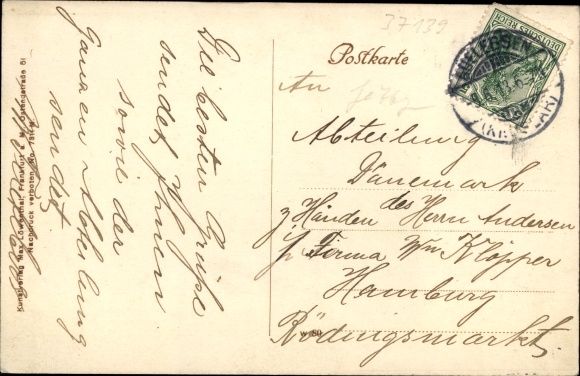 37139
Postkarte
DEUTSCHES REICH
An
Abteilung
Dänemark
z. Händen des Herrn Andersen
Firma Wm Klöpper
Hamburg
Rödingsmarkt.
W. 80
Die besten Grüße
sendet Ihnen
sowie der
ganzen Abteilung
sendet
Kunstverlag Max Löwenthal, Frankfurt a. M., Ostendstraße 51
Nachdruck verboten. No.